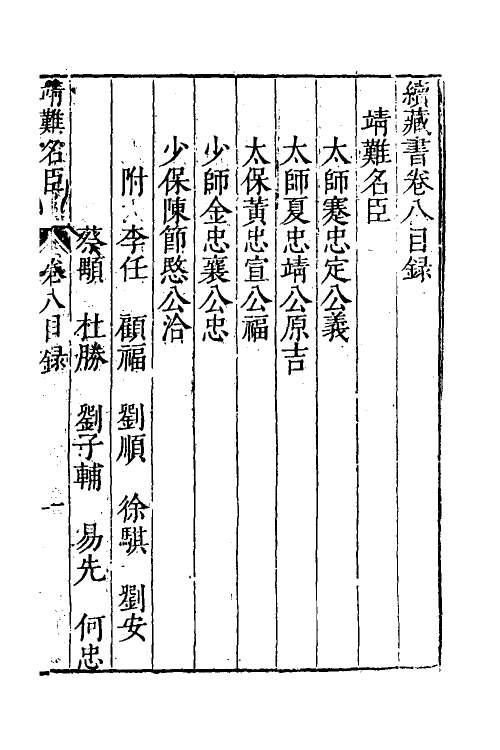 續藏書卷八目録
靖難名臣
太師蹇忠定公義
太師夏忠靖公原吉
太保黃忠宣公福
少師金忠襄公忠
少保陳節愍公洽
附 李任 顧福 劉順 徐騏 劉安
蔡顒 杜勝 劉子輔 易先 何忠
靖難名臣 卷八目録 一